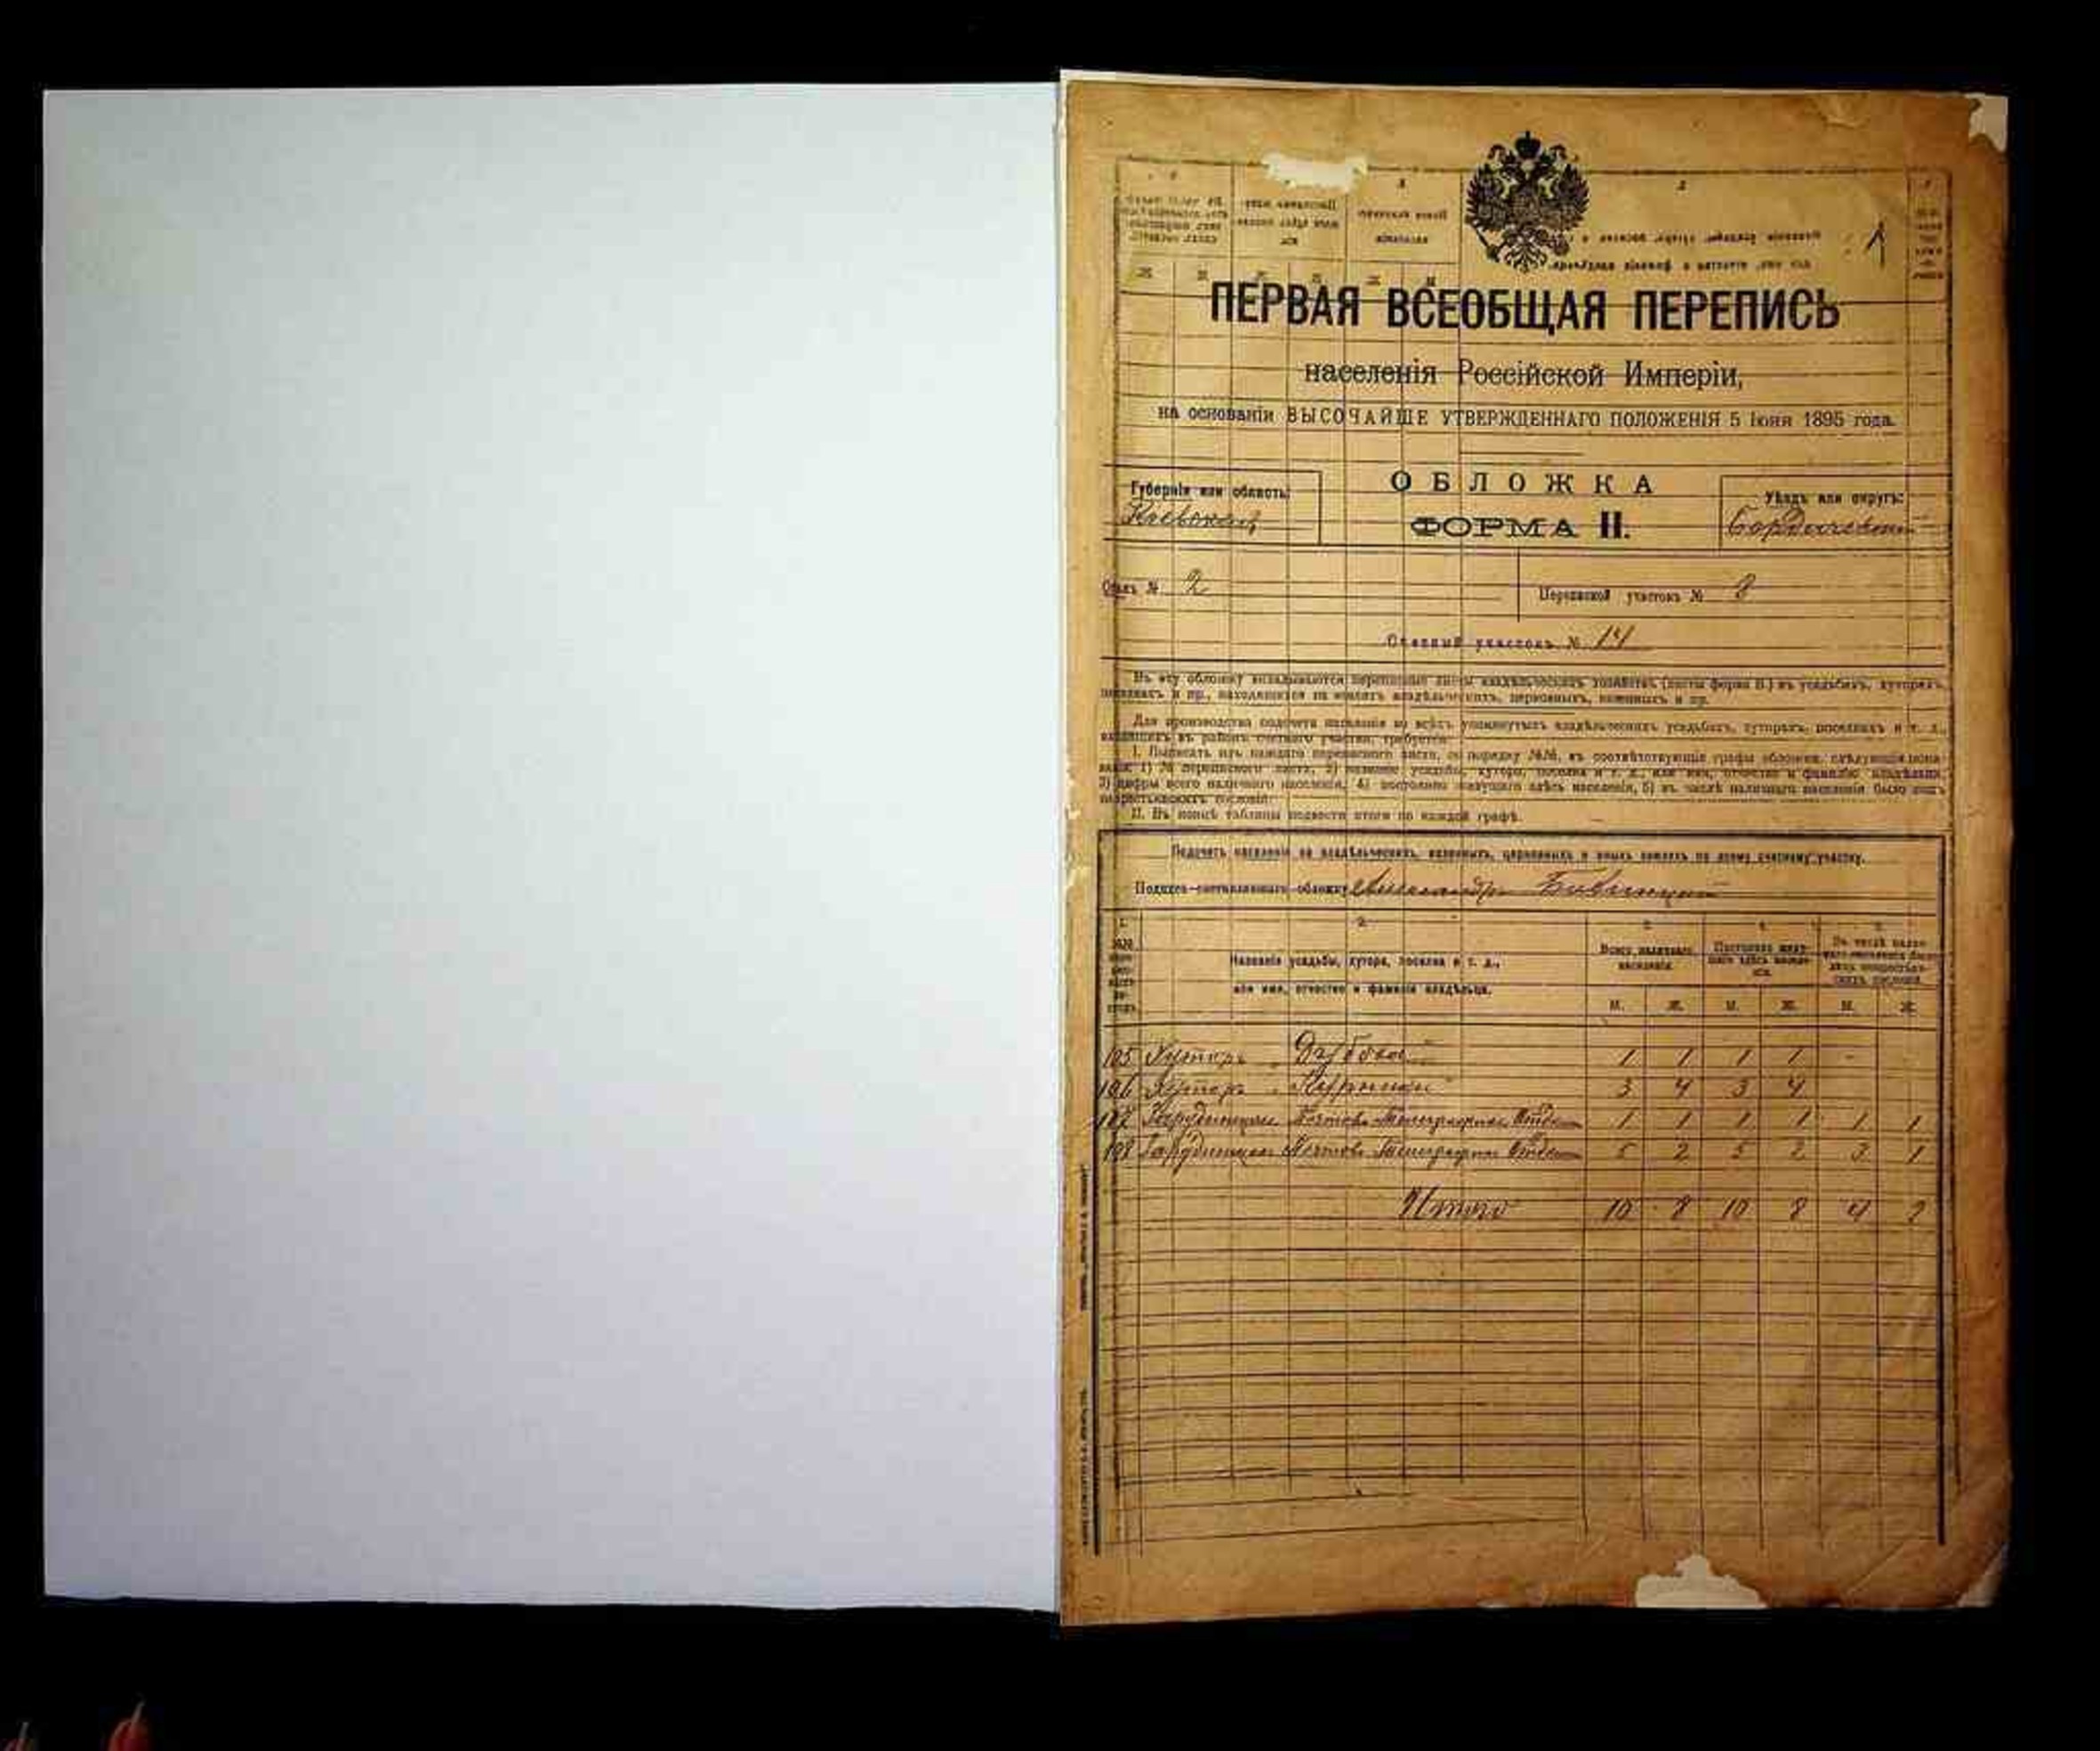 1
ПЕРВАЯ ВСЕОБЩАЯ ПЕРЕПИСЬ
населенія Россійской Имперіи,
на основаніи ВЫСОЧАЙШЕ УТВЕРЖДЕННАГО ПОЛОЖЕНІЯ 5 Іюня 1895 года.
Губернія или область:
Кіевская
ОБЛОЖКА
ФОРМА II.
Уѣздъ или округъ:
Бердичевскій
Отдѣлъ № 2
Переписной участокъ № 8
Счетный участокъ № 14
Въ эту обложку вкладываются переписные листы владѣльческихъ хозяйствъ (листы форма Б.) въ усадьбахъ, хуторахъ,
поселкахъ и пр., находящихся на земляхъ владѣльческихъ, церковныхъ, казенныхъ и пр.
Для производства подсчета населенія во всѣхъ упомянутыхъ владѣльческихъ усадьбахъ, хуторахъ, поселкахъ и т. д.,
входящихъ въ районъ счетнаго участка, требуется:
I. Выписать изъ каждаго переписного листа, по порядку №№, въ соотвѣтствующія графы обложки, слѣдующія пока-
занія: 1) № переписного листа, 2) названіе усадьбы, хутора, поселка и т. д., или имя, отчество и фамилію владѣльца,
3) цифры всего наличнаго населенія, 4) постоянно живущаго здѣсь населенія, 5) въ числѣ наличнаго населенія было лицъ
некрестьянскихъ сословій.
II. Въ концѣ таблицы подвести итоги по каждой графѣ.
Подсчетъ населенія на владѣльческихъ, казенныхъ, церковныхъ и иныхъ земляхъ по всему счетному участку.
Подпись составлявшаго обложку Александръ
1. 2. 3. 4. 5.
Названіе усадьбы, хутора, поселка и т. д.,
или имя, отчество и фамилія владѣльца.
Всего наличнаго населенія.
Постоянно живущаго здѣсь населенія.
Въ числѣ наличнаго населенія было лицъ некрестьянскихъ сословій.
М. Ж. М. Ж. М. Ж.
195 Хуторъ 1 1 1 1 -
196 Хуторъ 3 4 3 4
197 Почтово Телеграфное Отдѣл 1 1 1 1 1 1
198 Почтово Телеграфное Отдѣл 5 2 5 2 3 1
Итого 10 8 10 8 4 2